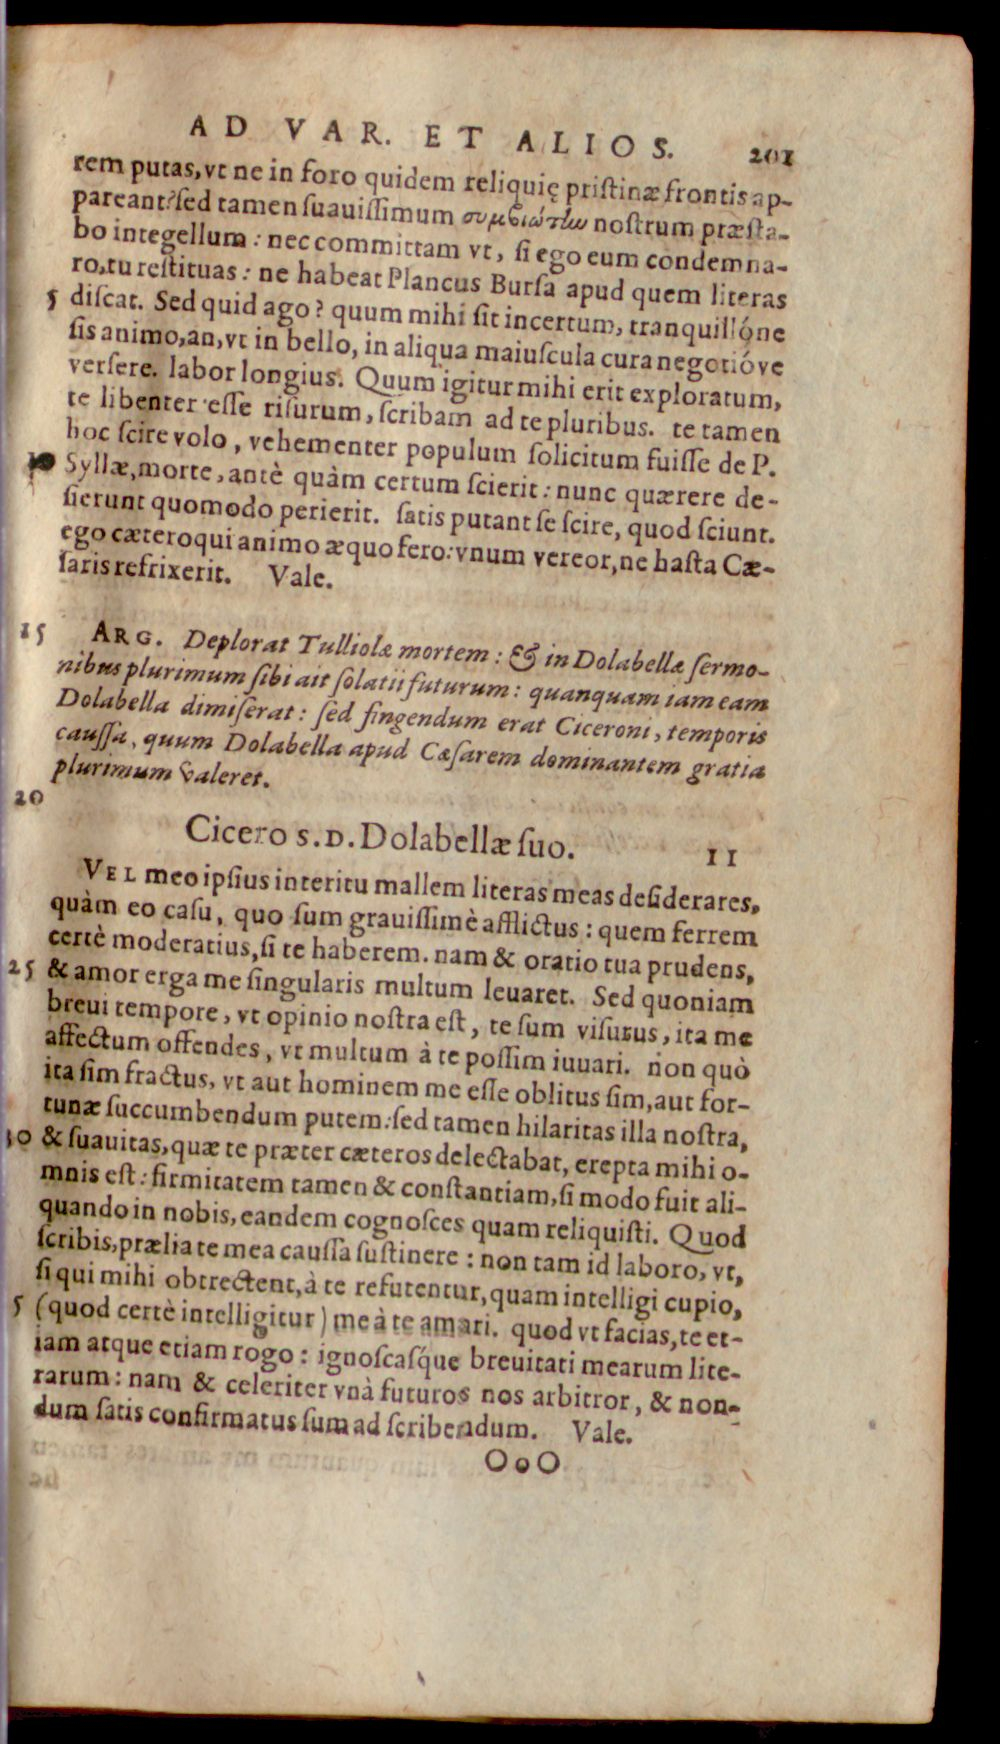 AD VAR. ET ALIOS. 201
rem putas, vt ne in foro quidem reliquię pristinæ frontis ap-
pareant? sed tamen suauissimum συμβιώτην nostrum præsta-
bo integellum: nec committam vt, si ego eum condemna-
ro, tu restituas: ne habeat Plancus Bursa apud quem literas
5 discat. Sed quid ago? quum mihi sit incertum, tranquillóne
sis animo, an, vt in bello, in aliqua maiuscula cura negotióve
versere. labor longius. Quum igitur mihi erit exploratum,
te libenter esse risurum, scribam ad te pluribus. te tamen
hoc scire volo, vehementer populum solicitum fuisse de P.
10 Syllæ, morte, antè quàm certum scierit: nunc quærere de-
sierunt quomodo perierit. satis putant se scire, quod sciunt.
ego cæteroqui animo æquo fero: vnum vereor, ne hasta Cæ-
saris refrixerit. Vale.
15 ARG. Deplorat Tulliolæ mortem: & in Dolabellæ sermo-
nibus plurimum sibi ait solatii futurum: quanquam iam eam
Dolabella dimiserat: sed fingendum erat Ciceroni, temporis
caussa, quum Dolabella apud Cæsarem dominantem gratia
plurimum valeret.
20
Cicero S. D. Dolabellæ suo. 11
VEL meo ipsius interitu mallem literas meas desiderares,
quàm eo casu, quo sum grauissimè afflictus: quem ferrem
certè moderatius, si te haberem. nam & oratio tua prudens,
25 & amor erga me singularis multum leuaret. Sed quoniam
breui tempore, vt opinio nostra est, te sum visurus, ita me
affectum offendes, vt multum à te possim iuuari. non quò
ita sim fractus, vt aut hominem me esse oblitus sim, aut for-
tunæ succumbendum putem: sed tamen hilaritas illa nostra,
30 & suauitas, quæ te præter cæteros delectabat, erepta mihi o-
mnis est: firmitatem tamen & constantiam, si modo fuit ali-
quando in nobis, eandem cognosces quam reliquisti. Quod
scribis, prælia te mea caussa sustinere: non tam id laboro, vt,
si qui mihi obtrectent, à te refutentur, quam intelligi cupio,
5 (quod certè intelligitur) me à te amari. quod vt facias, te et-
iam atque etiam rogo: ignoscasq́ue breuitati mearum lite-
rarum: nam & celeriter vnà futuros nos arbitror, & non-
dum satis confirmatus sum ad scribendum. Vale.
OoO